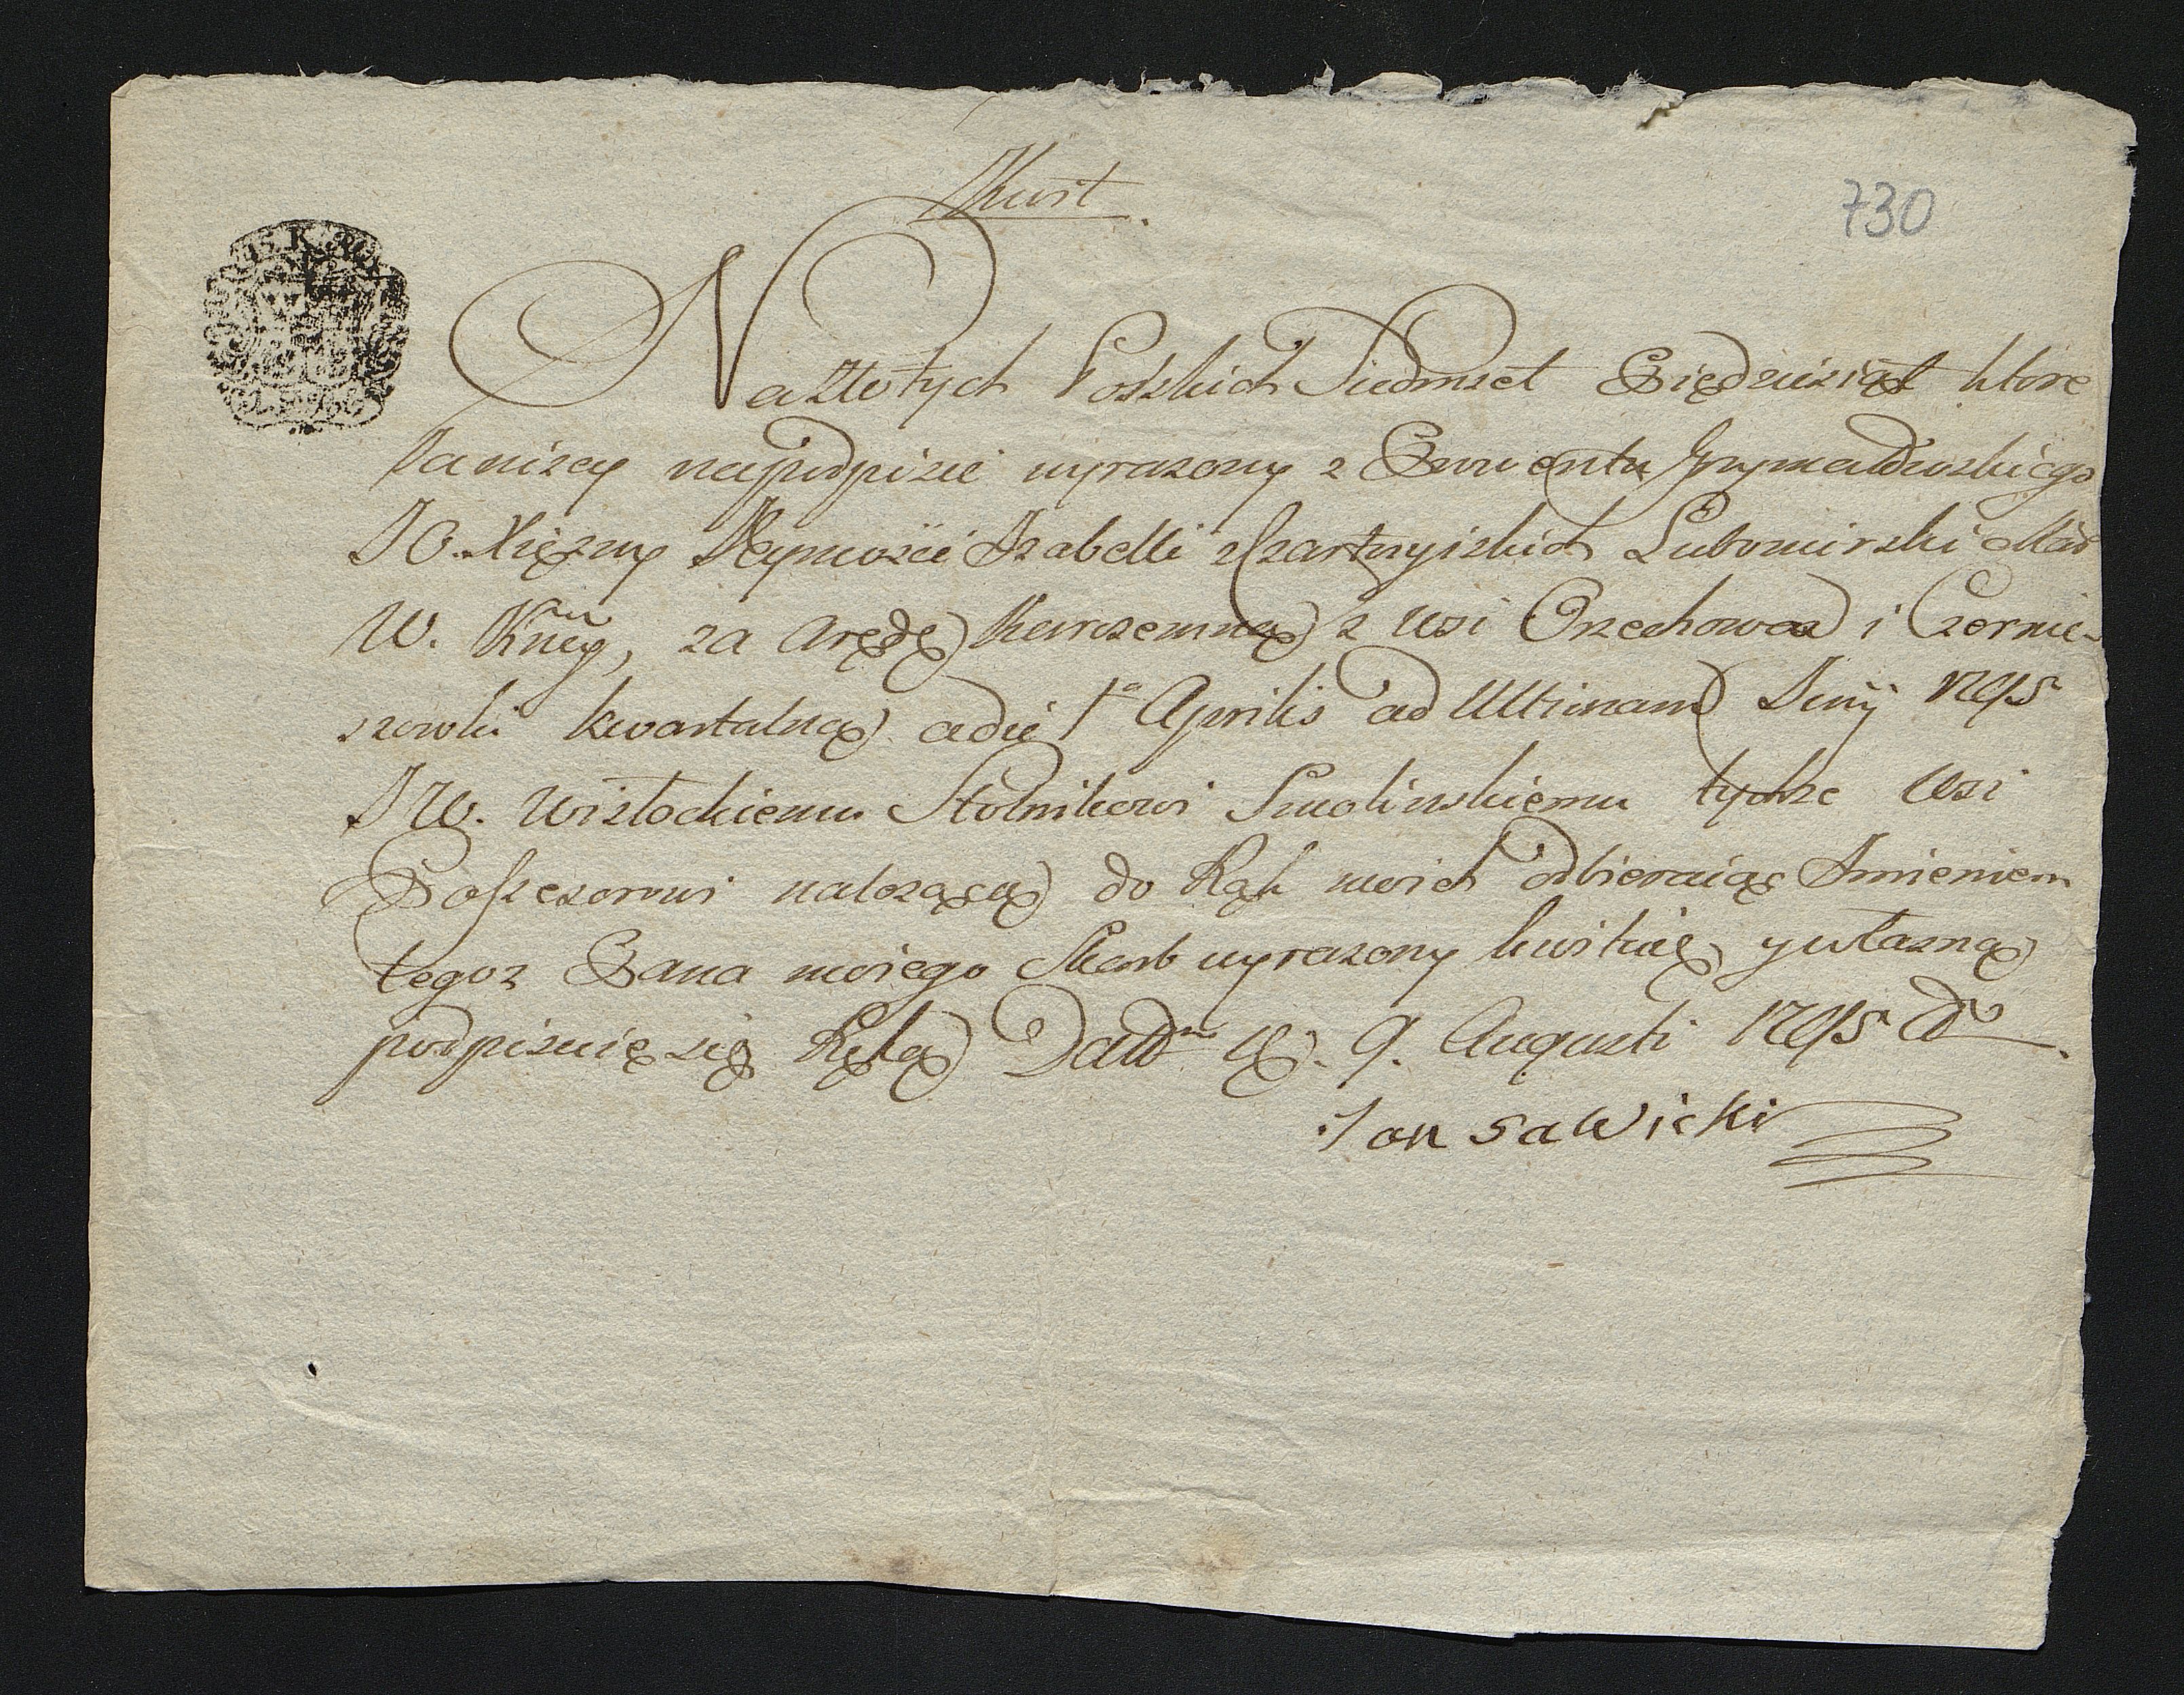 Kwit
730
15 K
Na Złotych Polskich Siedmset Piędziesiąt ktore
Ja niżey na podpisie wyrazony z Prowentu Grzymałowskiego
JO. Xiężny Jeymości Izabelli z Czartoryiskich Lubomirski Mar
W. Knĕy, za Arędę Karczemną z Wsi Orzechowca i Czernie-
szowki kwartalną a die 1º Aprilis ad Ultimam Junÿ 1795
J W. Wisłockiemu Stolnikowi Smolinskiemu tychże Wsi
Possesorowi należącą do Rąk moich odbieraiąc Imieniem
tegoz Pana moiego Skarb wyrazony kwituię, y własną
podpisuię się Ręką Datt D. 9. Augusti 1795
Jan Sawicki